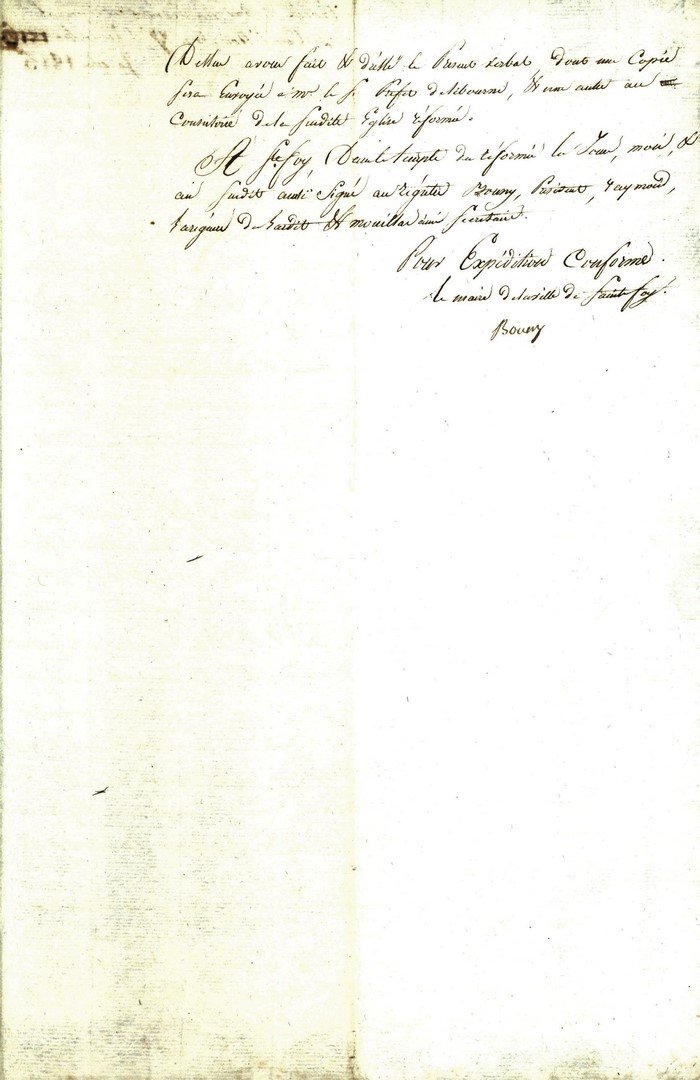 Desku avons fait & dressé le Present verbal, dont une Copie
sera Envoyée a mr le s. Prefet de Libourne, & une autre au
Consistoire de la susdite Eglise réformée.
A Ste foy, Dans le temple des réformés les Jour, mois, &
an susdit ainsi Signé au régitre Bouny, President, raymond,
de & secretaire.
Pour Expédition Conforme.
Le maire de la ville de Sainte foy.
Bouny